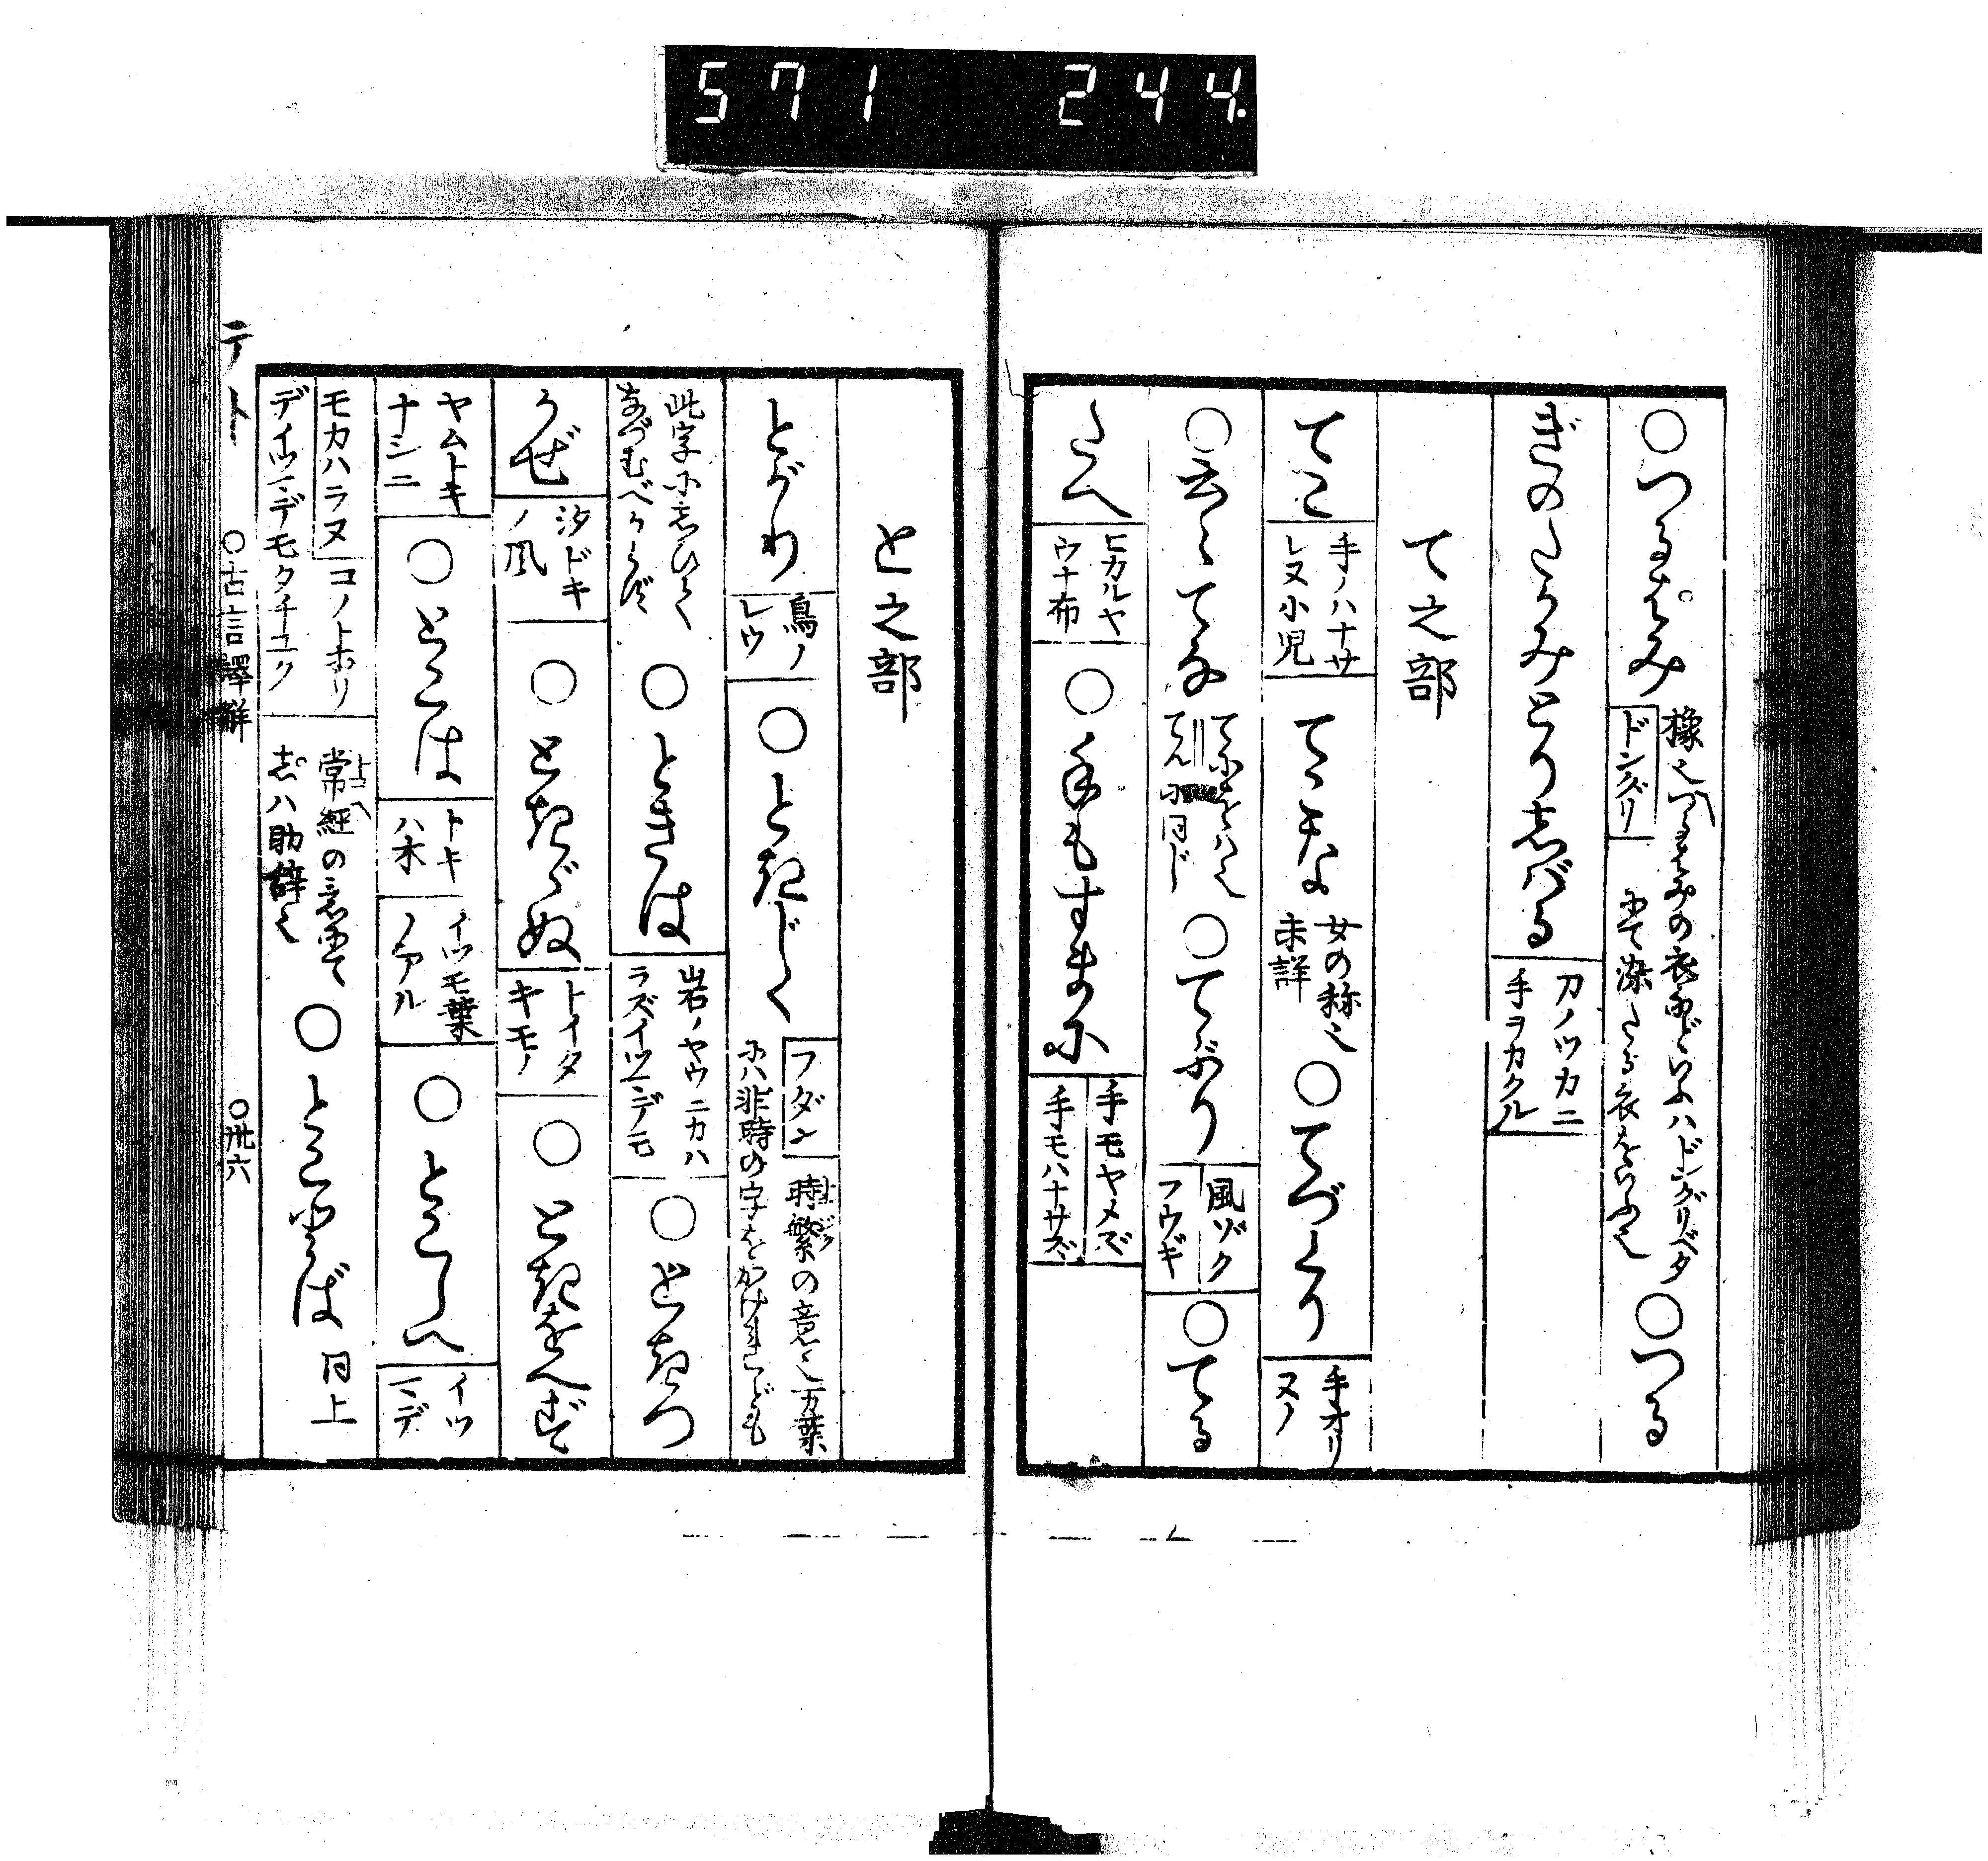 571 244.
○つるばみ 橡也つるばみの衣などいふハドングリベタ
ドングリ にて染たる衣をいふ也 ○つる
ぎのたかみとりしばる 刀ノツカニ
手ヲカクル
て之部
てこ 手ノハナサ
レヌ小児 てこな 女の称也
未詳 ○てづくり 手オリ
ヌノ
○云々てな てにをハ也
てんに同じ ○てぶり 風ゾク
フウギ ○てる
たへ ヒカルヤ
ウナ布 ○手もすまに 手モヤメズ
手モハナサズ
と之部
とがり 鳥ノ
レウ ○ときじく フダン 時繁の意也万葉
にハ非時の字をかけれども
此字にしひて
なづむべからず ○ときは 岩ノヤウニカハ
ラズイツマデモ ○ときつ
かぜ 汐ドキ
ノ風 ○ときぎぬ トイタ
キモノ ○ときをへず
ヤムトキ
ナシニ ○とこは トキ
ハ木 イツモ葉
ノアル ○とこしへ イツ
マデ
モカハラヌ コノトホリ
デイツマデモタチユク 常經の意にて
しハ助辞也 ○とこしくば 同上
テト
○古言譯解
○卅六